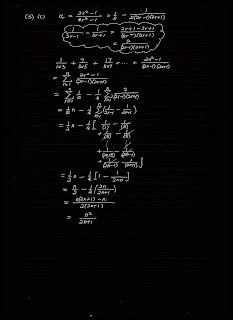 (b) (i) Uᵣ = (2r² − 1)/(4r² − 1) = 1/2 − 1/(2(2r−1)(2r+1))
1/(2r−1) − 1/(2r+1) = (2r+1−2r+1)/((2r−1)(2r+1))
= 2/((2r−1)(2r+1))
1/(1×3) + 7/(3×5) + 17/(5×7) + ... + (2n²−1)/((2n−1)(2n+1))
= Σ (2r²−1)/((2r−1)(2r+1))
= Σ 1/2 − 1/4 Σ 2/((2r−1)(2r+1))
= 1/2 n − 1/4 Σ (1/(2r−1) − 1/(2r+1))
= 1/2 n − 1/4 [ 1/(1) − 1/(3)
+ 1/(3) − 1/(5)
+ 1/(2n−3) − 1/(2n−1)
+ 1/(2n−1) − 1/(2n+1) ]
= 1/2 n − 1/4 [ 1 − 1/(2n+1) ]
= n/2 − 1/4 (2n/(2n+1))
= (n(2n+1) − n)/(2(2n+1))
= n²/(2n+1)